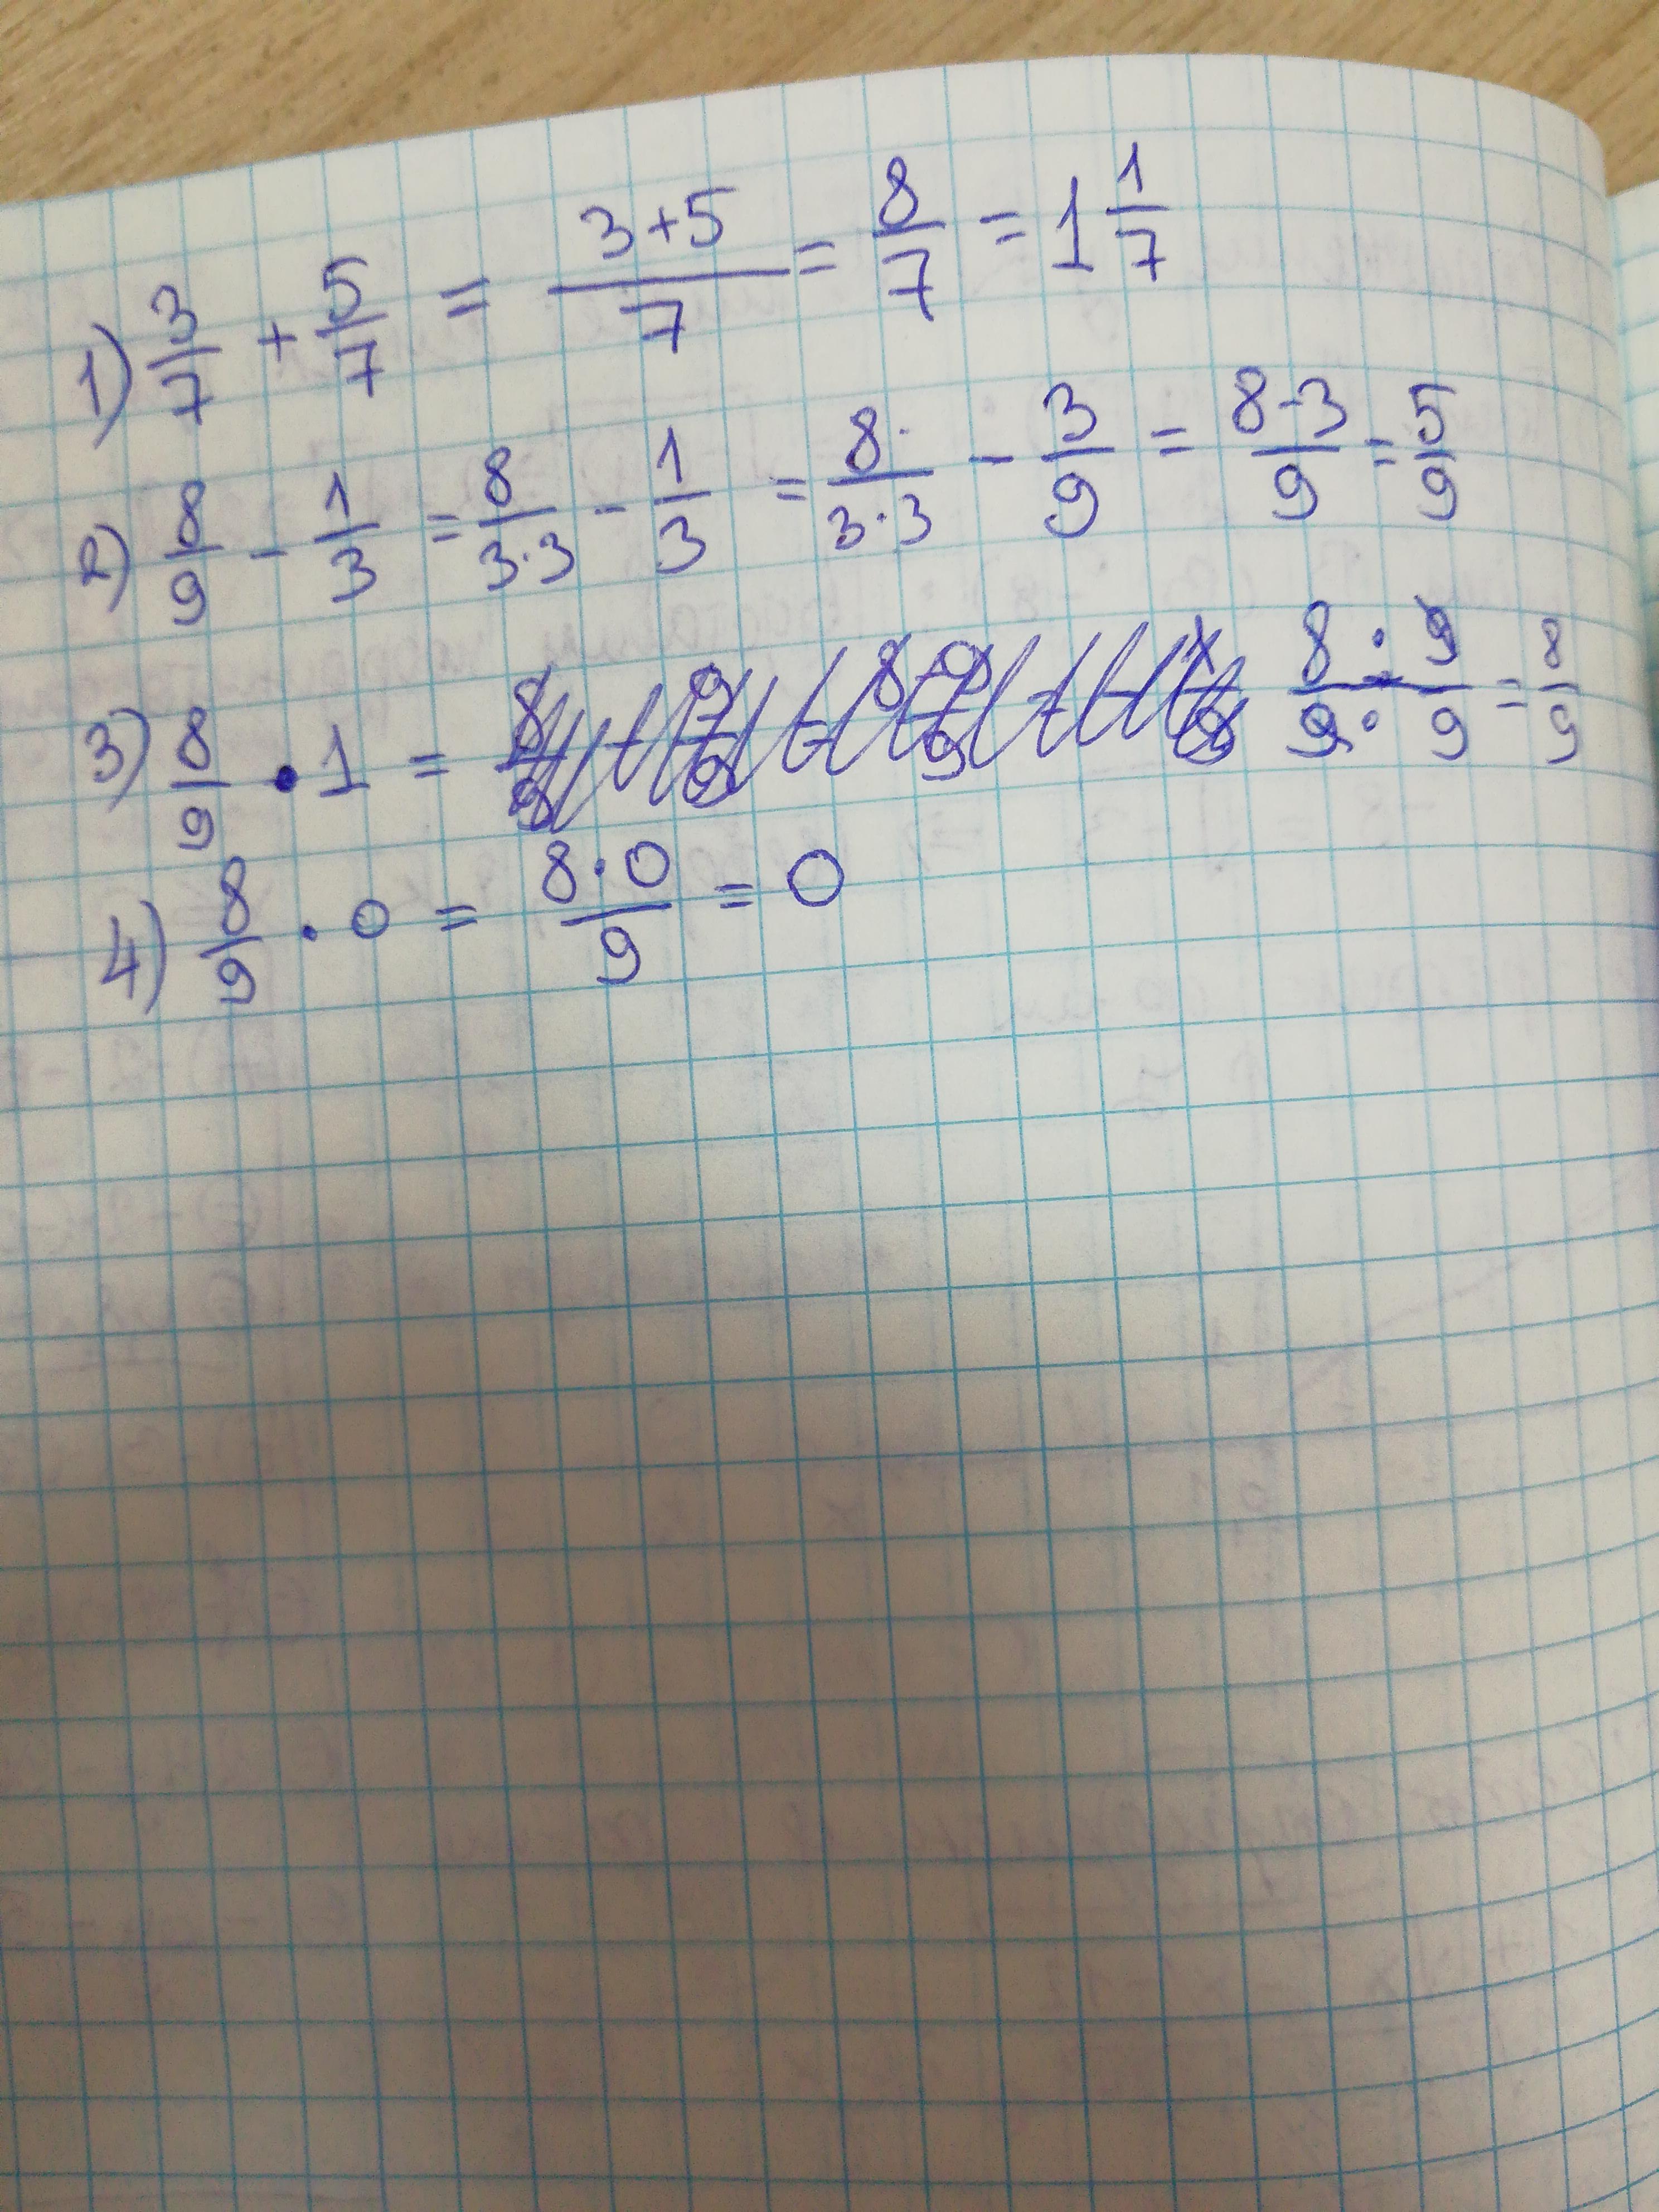 1) 3/7 + 5/7 = (3+5)/7 = 8/7 = 1 1/7
2) 8/9 - 1/3 = 8/(3·3) - 1/3 = 8·/(3·3) - 3/9 = (8-3)/9 = 5/9
3) 8/9 · 1 = (8·9)/(9·9) = 8/9
4) 8/9 · 0 = (8·0)/9 = 0